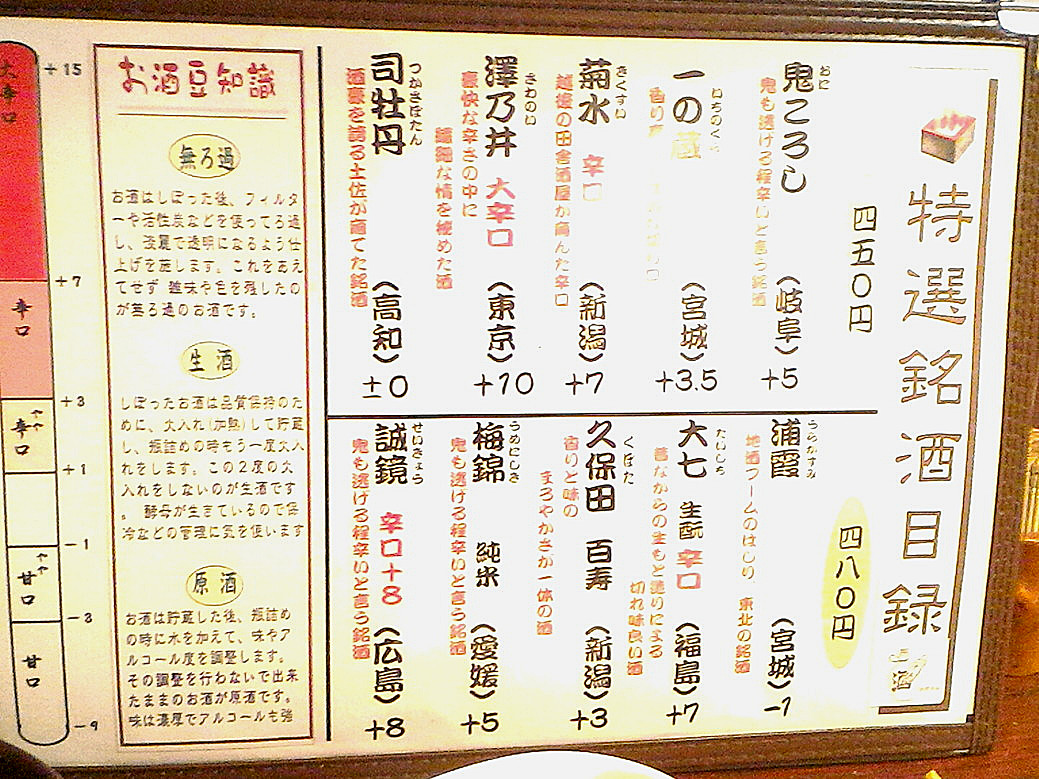 特選銘酒目録
四五〇円
おに
鬼ころし
鬼も逃げる程辛いと言う銘酒
(岐阜)
+5
いちのくら
一の蔵
香り
(宮城)
+3.5
きくすい
菊水 辛口
越後の田舎酒屋が育んだ辛口
(新潟)
+7
さわのい
澤乃井 大辛口
豪快な辛さの中に
繊細な情を秘めた酒
(東京)
+10
つかさぼたん
司牡丹
酒豪を誇る土佐が育てた銘酒
(高知)
±0
四八〇円
うらかすみ
浦霞
地酒ブームのはしり 東北の銘酒
(宮城)
-1
たいしち
大七 生酛 辛口
昔ながらの生もと造りによる
切れ味良い酒
(福島)
+7
くぼた
久保田 百寿
香りと味の
まろやかさが一体の酒
(新潟)
+3
うめにしき
梅錦 純米
鬼も逃げる程辛いと言う銘酒
(愛媛)
+5
せいきょう
誠鏡 辛口+8
鬼も逃げる程辛いと言う銘酒
(広島)
+8
お酒豆知識
無ろ過
お酒はしぼった後、フィルタ
ーや活性炭などを使ってろ過
し、淡麗で透明になるよう仕
上げを施します。これをあえ
てせず 雑味や色を残したの
が無ろ過のお酒です。
生酒
しぼったお酒は品質保持のた
めに、火入れ(加熱)して貯蔵
し、瓶詰めの時もう一度火入
れをします。この2度の火
入れをしないのが生酒です
。酵母が生きているので保
冷などの管理に気を使います
原酒
お酒は貯蔵した後、瓶詰め
の時に水を加えて、味やア
ルコール度を調整します。
その調整を行わないで出来
たままのお酒が原酒です。
味は濃厚でアルコールも強
+15
大辛口
+7
辛口
+3
やや辛口
+1
-1
やや甘口
-3
甘口
-9